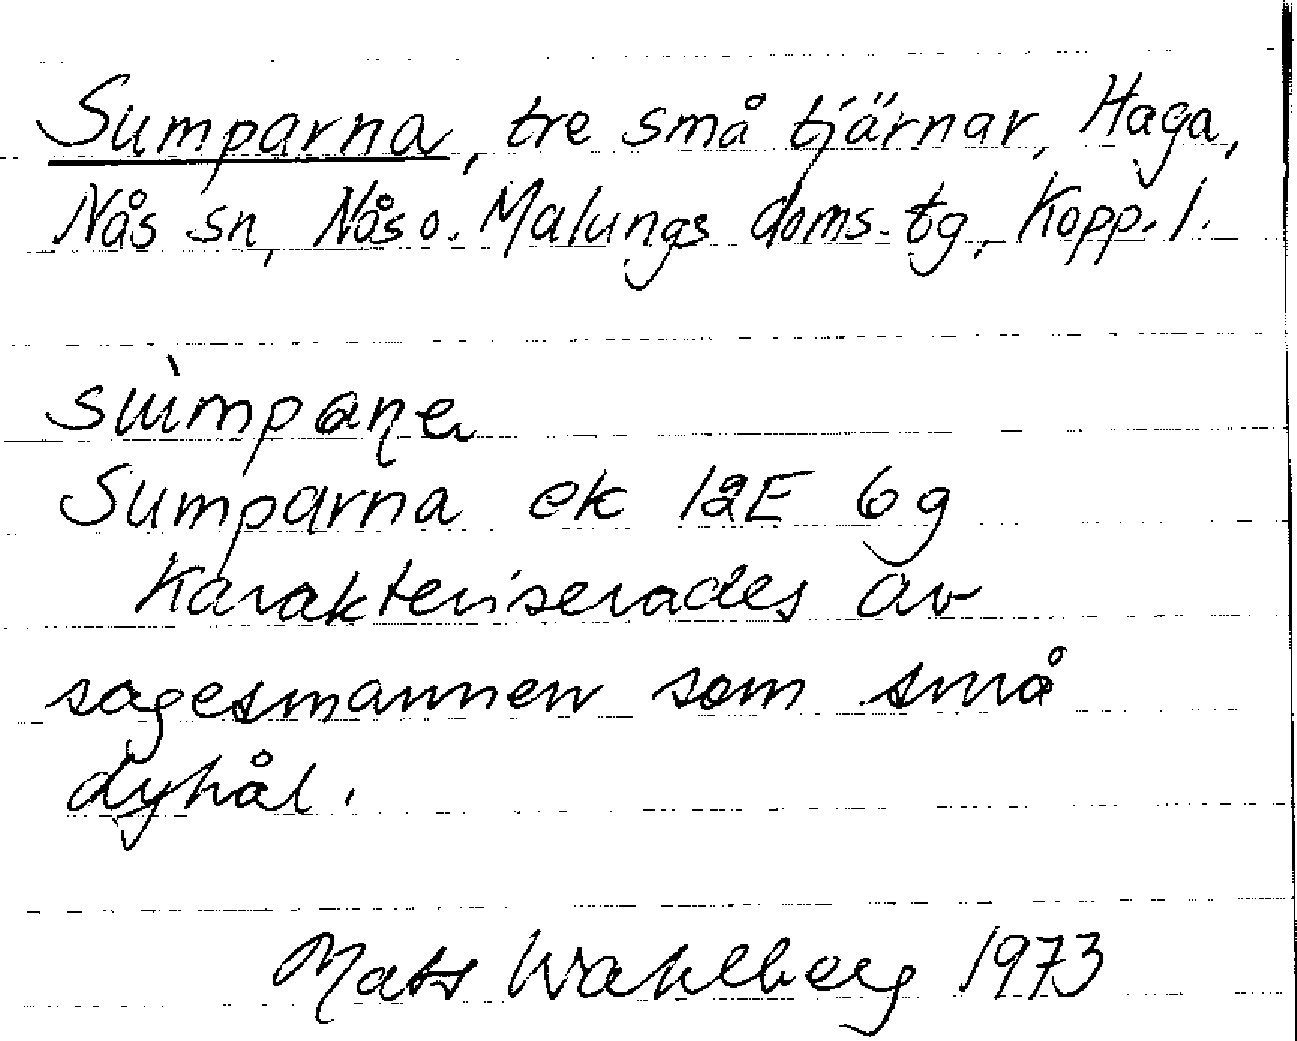 Sumparna, tre små tjärnar, Haga,
Nås sn, Nås o. Malungs doms. tg, Kopp. l.
sùmpaṇa
Sumparna ek 12E 6g
Karakteriserades av
sagesmannen som små
dyhål.
Mats Wahlberg 1973